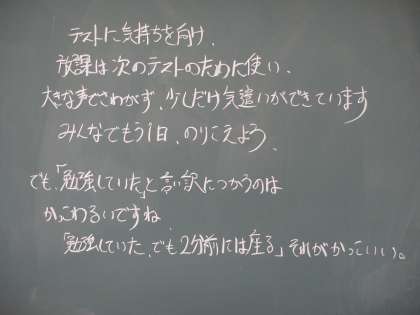 テストに気持ちを向け、
放課は次のテストのために使い、
大きな声でさわがず、少しだけ気遣いができています
みんなでもう1日、のりこえよう。
でも、「勉強していた」と言い訳につかうのは
かっこわるいですね。
「勉強していた、でも2分前には座る」それがかっこいい。